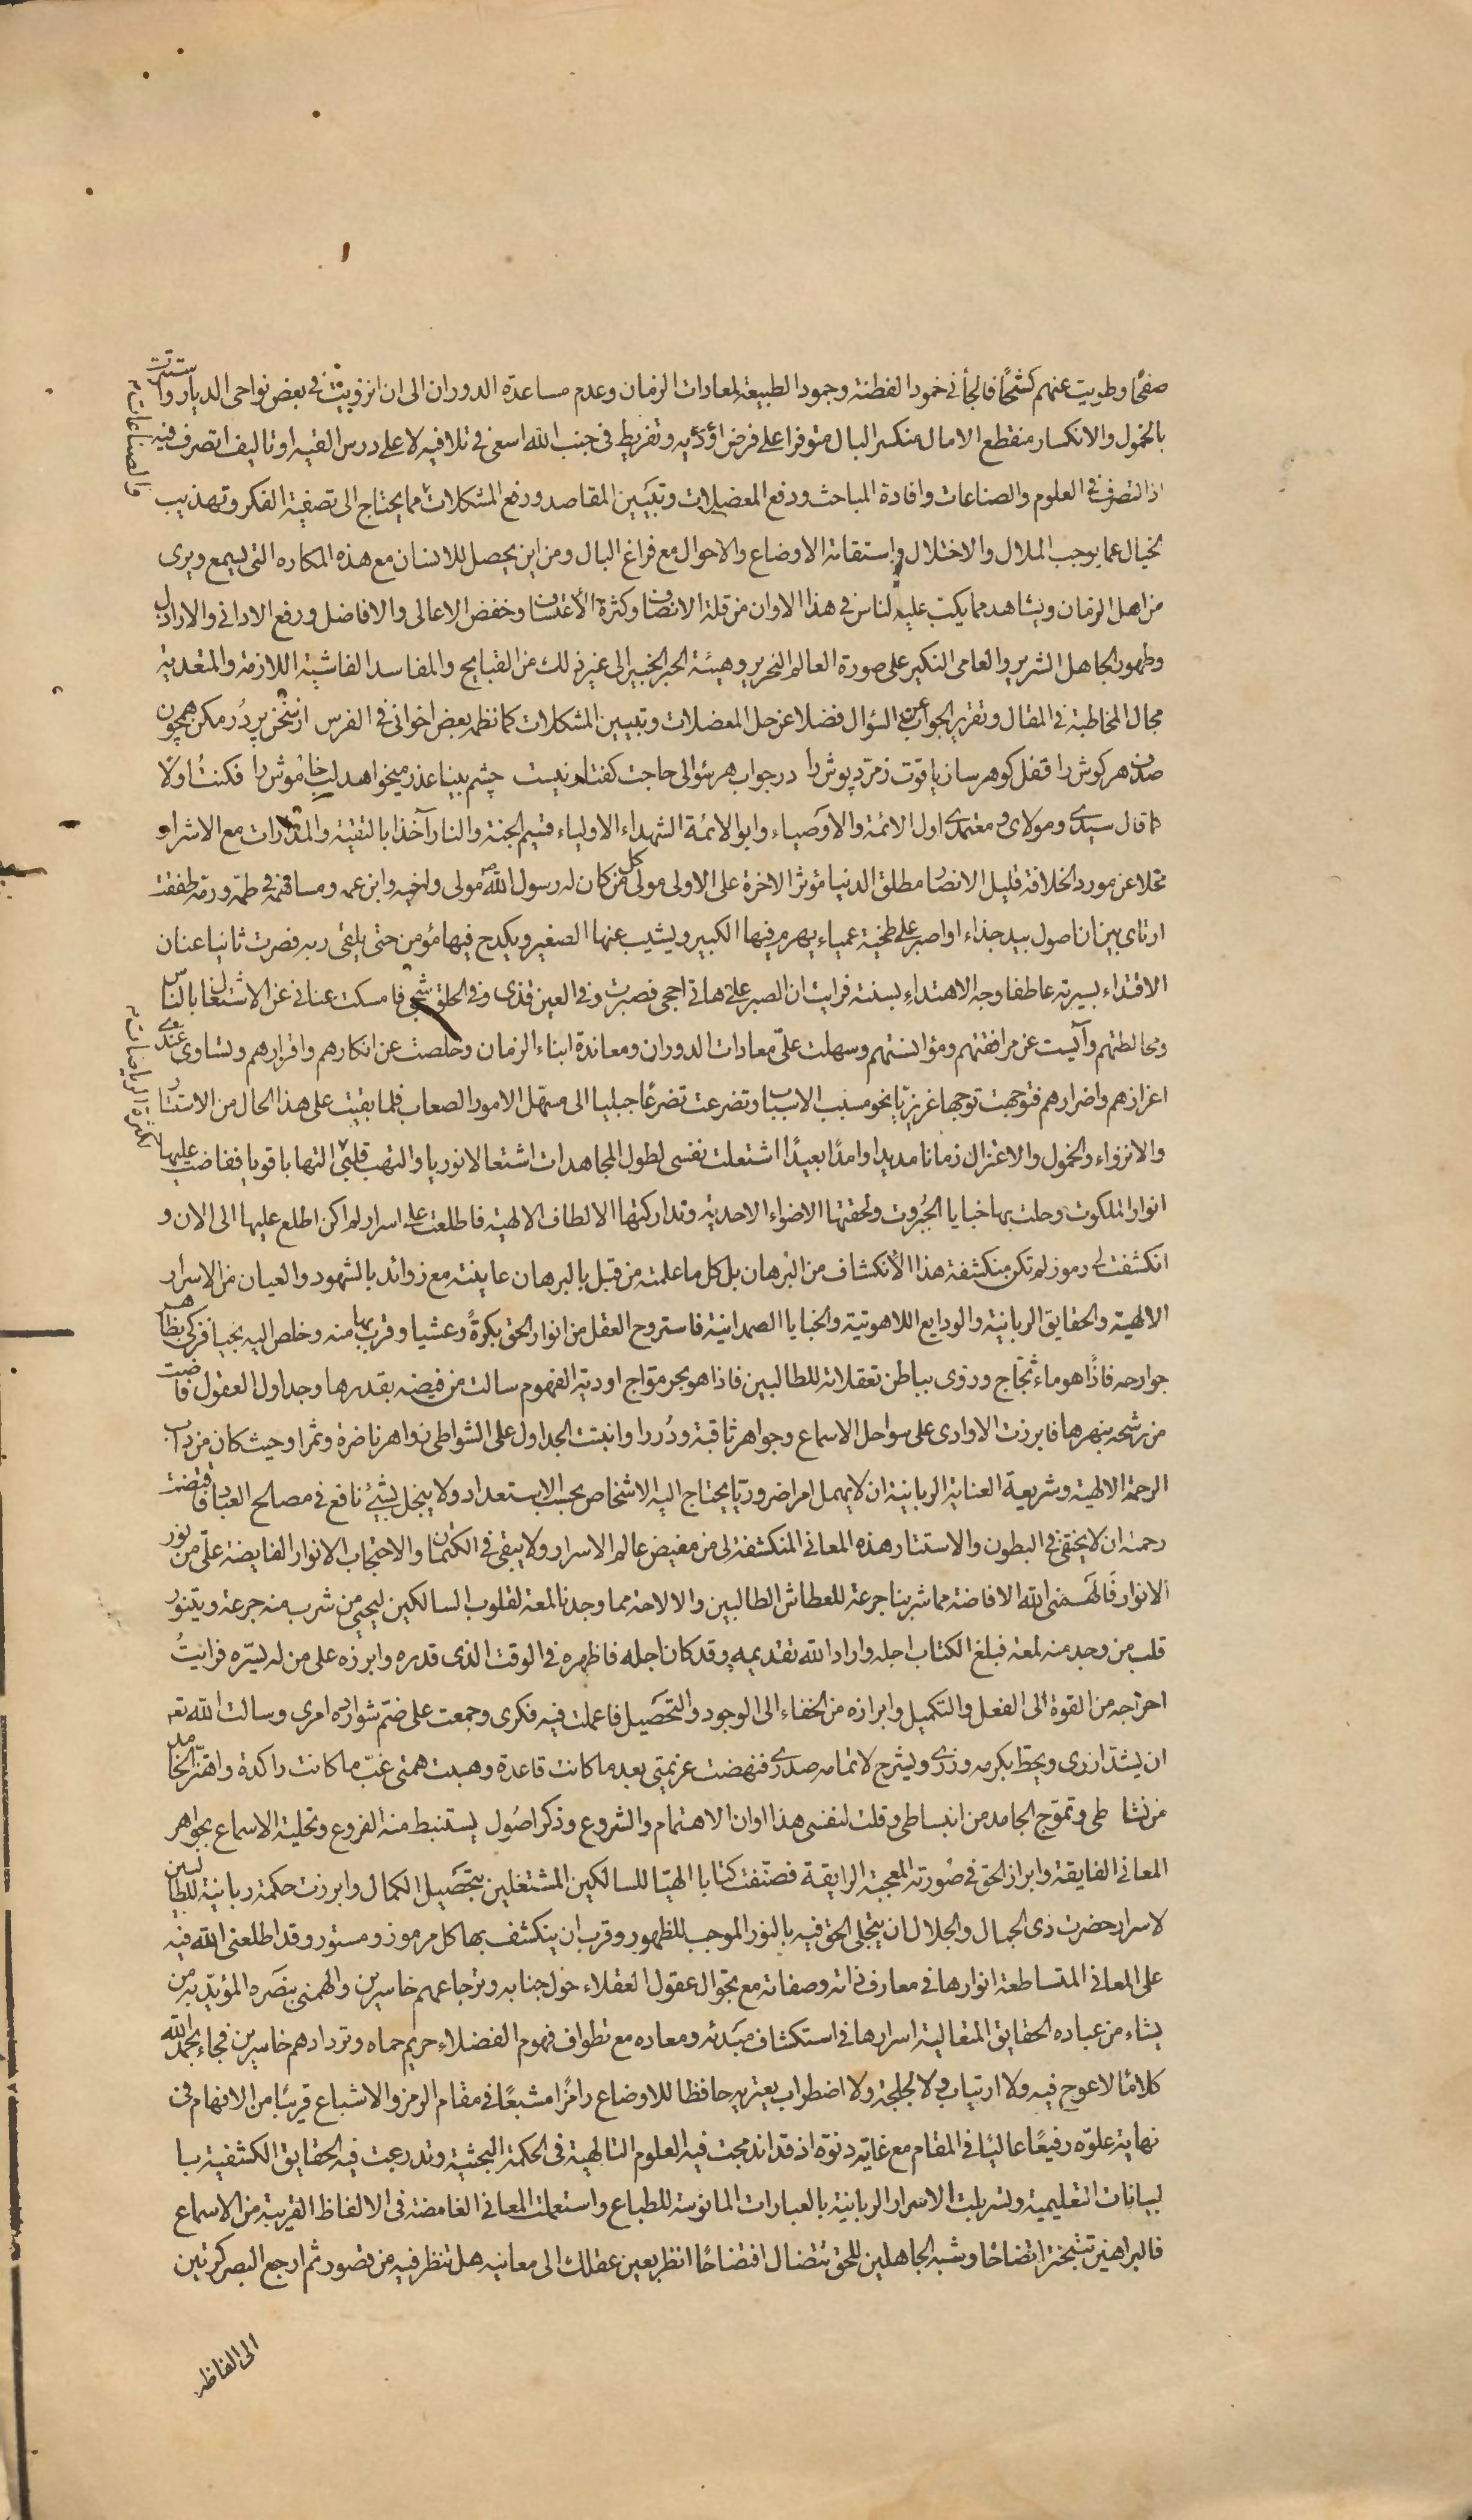 صفحًا وطويت عنهم كشحًا فالجأنى خمود الفطنة وجمود الطبيعة لمعادات الزمان وعدم مساعدة الدوران الى ان انزويت فى بعض نواحى الديار واستترت
بالخمول والانكسار منقطع الامال منكسر البال متوفرا على فرض اؤدّيه وتفريط فى جنب الله اسعى فى تلافيه لا على درس القيه او تاليف اتصرف فيه
اذ التصرف فى العلوم والصناعات وافادة المباحث ودفع المعضلات وتبيين المقاصد ورفع المشكلات مما يحتاج الى تصفية الفكر وتهذيب
الخيال عما يوجب الملال والاختلال واستقامة الاوضاع والاحوال مع فراغ البال ومن اين يحصل للانسان مع هذه المكاره التى يسمع ويرى
من اهل الزمان ويشاهد مما يكب عليه الناس فى هذا الاوان من قلة الانصاف وكثرة الاعتساف وخفض الاعالى والافاضل ورفع الادانى والاراذل
وظهور الجاهل الشرير والعامى النكير على صورة العالم النحرير وهيئة الحبر الخبير الى غير ذلك من القبايح والمفاسد الفاشية اللازمة والمتعدية
مجال المخاطبة فى المقال وتقرير الجواب عن السؤال فضلا عن حل المعضلات وتبيين المشكلات كما نظمه بعض اخوانى فى الفرس از سخن پر دُر مكن همچون
صدف هر گوش را قفل گوهر ساز ياقوت زمرّد پوش را در جواب هر سؤالى حاجت گفتار نيست چشم بينا عذر ميخواهد لب خاموش را فكنتُ اولا
كما قال سيدى ومولاى ومعتمدى اول الائمة والاوصياء وابو الائمة الشهداء الاولياء قسيم الجنة والنار آخذا بالتقية والمدارات مع الاشرار و
مخلا عن مورد الخلافة قليل الانصار مطلق الدنيا مؤثر الاخرة على الاولى مولى كل من كان له رسول الله ص مولى واخيه وابن عمه ومساهمه فى طمه ورمه طفقت
ارتاى بين ان اصول بيد جذاء او اصبر على طخية عمياء يهرم فيها الكبير ويشيب عنها الصغير ويكدح فيها مؤمن حتى يلقى ربه فصرت ثانيا عنان
الاقتداء بسيرته عاطفا وجه الاهتداء بسنته فرايت ان الصبر على هاتى احجى فصبرت وفى العين قذى وفى الحلق شجى فامسكت عنانى عن الاشتغال بالناس
ومخالطتهم وآيست عن مرافقتهم ومؤانستهم وسهلت علىّ معادات الدوران ومعاندة ابناء الزمان وخلصت عن انكارهم واقرارهم وتساوى عندى
اعزازهم واضرارهم فتوجهت توجها غريزيا نحو مسبب الاسباب وتضرعت تضرعًا جبليا الى مسهّل الامور الصعاب فلما بقيت على هذا الحال من الاستتار
والانزواء والخمول والاعتزال زمانا مديدا وامدًا بعيدًا اشتعلت نفسى لطول المجاهدات اشتعالا نوريا والتهب قلبى التهابا قويا ففاضت عليها
لكثرة الرياضات
انوار الملكوت وحلت بها خبايا الجبروت ولحقتها الاضواء الاحدية وتداركتها الالطاف الالهية فاطلعت على اسرار لم اكن اطلع عليها الى الان و
انكشفت لى رموز لم تكن منكشفة هذا الانكشاف من البرهان بل كل ما علمته من قبل بالبرهان عاينته مع زوائد بالشهود والعيان من الاسرار
الالهية والحقايق الربانية والودايع اللاهوتية والخبايا الصمدانية فاستروح العقل من انوار الحق بكرةً وعشيا وقرب بها منه وخلص اليه نجيا فزكى بظاهر
جوارحه فاذًا هو ماء ثجّاج وزوى بباطن تعقلاته للطالبين فاذا هو بحر موّاج اودية الفهوم سالت من فيضه بقدرها وجداول العقول فاضت
من رشحه بنهرها فابرزت الاوادى على سواحل الاسماع وجواهر ثاقبة ودُررا وانبتت الجداول على الشواطى زواهر ناضرة وثمرا وحيث كان من داب
الرحمة الالهية وشريعة العناية الربانية ان لا يهمل امرا ضروريا يحتاج اليه الاشخاص بحسب الاستعداد ولا يبخل بشىء نافع فى مصالح العباد فاقتضت
رحمته ان لا يختفى فى البطون والاستتار هذه المعانى المنكشفة لى من مفيض عالم الاسرار ولا يبقى فى الكتمان والاحتجاب الانوار الفايضة علىّ من نور
الانوار فالهمنى الله الافاضة مما شربنا جرعة للعطاش الطالبين والالاحة مما وجدنا لمعة لقلوب السالكين ليحيى من شرب منه جرعة ويتنور
قلب من وجد منه لمعة فبلغ الكتاب اجله واراد الله تقديمه وقد كان اجله فاظهره فى الوقت الذى قدره وابرزه على من له يسّره فرايتُ
اخراجه من القوة الى الفعل والتكميل وابرازه من الخفاء الى الوجود والتحصيل فاعملت فيه فكرى وجمعت على ضمّ شوارده امرى وسالت الله تعه
ان يشدّ ازرى ويحط بكرمه وزرى ويشرح لاتمامه صدرى فنهضت عزيمتى بعد ما كانت قاعدة وهبت همتى غبّ ما كانت راكدة واهتزّ الخامد
من نشاطى وتموّج الجامد من انبساطى وقلت لنفسى هذا اوان الاهتمام والشروع وذكر اصول يستنبط منه الفروع وتحلية الاسماع بجواهر
المعانى الفايقة وابراز الحق فى صورته المعجبة الرايقة فصنّفت كتابا الهيّا للسالكين المشتغلين بتحصيل الكمال وابرزت حكمة ربانية للطالبين
لاسرار حضرت ذى الجمال والجلال ان يتجلى الحق فيه بالنور الموجب للظهور وقرب ان ينكشف بها كل مرموز ومستور وقد اطلعنى الله فيه
على المعانى المتساطعة انوارها فى معارف ذاته وصفاته مع تجوال عقول العقلاء حول جنابه وترجاعهم خاسرين والهمنى بنصره المؤيد به من
يشاء من عباده الحقايق المتعالية اسرارها فى استكشاف مبدئه ومعاده مع تطواف فهوم الفضلاء حريم حماه وتردادهم خاسرين فجاء بحمد الله
كلامًا لا عوج فيه ولا ارتياب ولا لجلجة ولا اضطراب يعتريه حافظا للاوضاع رامزًا مشبعًا فى مقام الرمز والاشباع قريبًا من الافهام فى
نهاية علوّه رفيعًا عاليًا فى المقام مع غاية دنوّه اذ قد اندمجت فيه العلوم التالهية فى الحكمة البحثية وتدرعت فيه الحقايق الكشفية با
لبيانات التعليمية وتسربلت الاسرار الربانية بالعبارات المانوسة للطباع واستعملت المعانى الغامضة فى الالفاظ القريبة من الاسماع
فالبراهين تتبختر اتضاحًا وشبه الجاهلين للحق تتضال افتضاحًا انظر بعين عقلك الى معانيه هل تنظر فيه من قصور ثم ارجع البصر كرتين
الى الفاظه